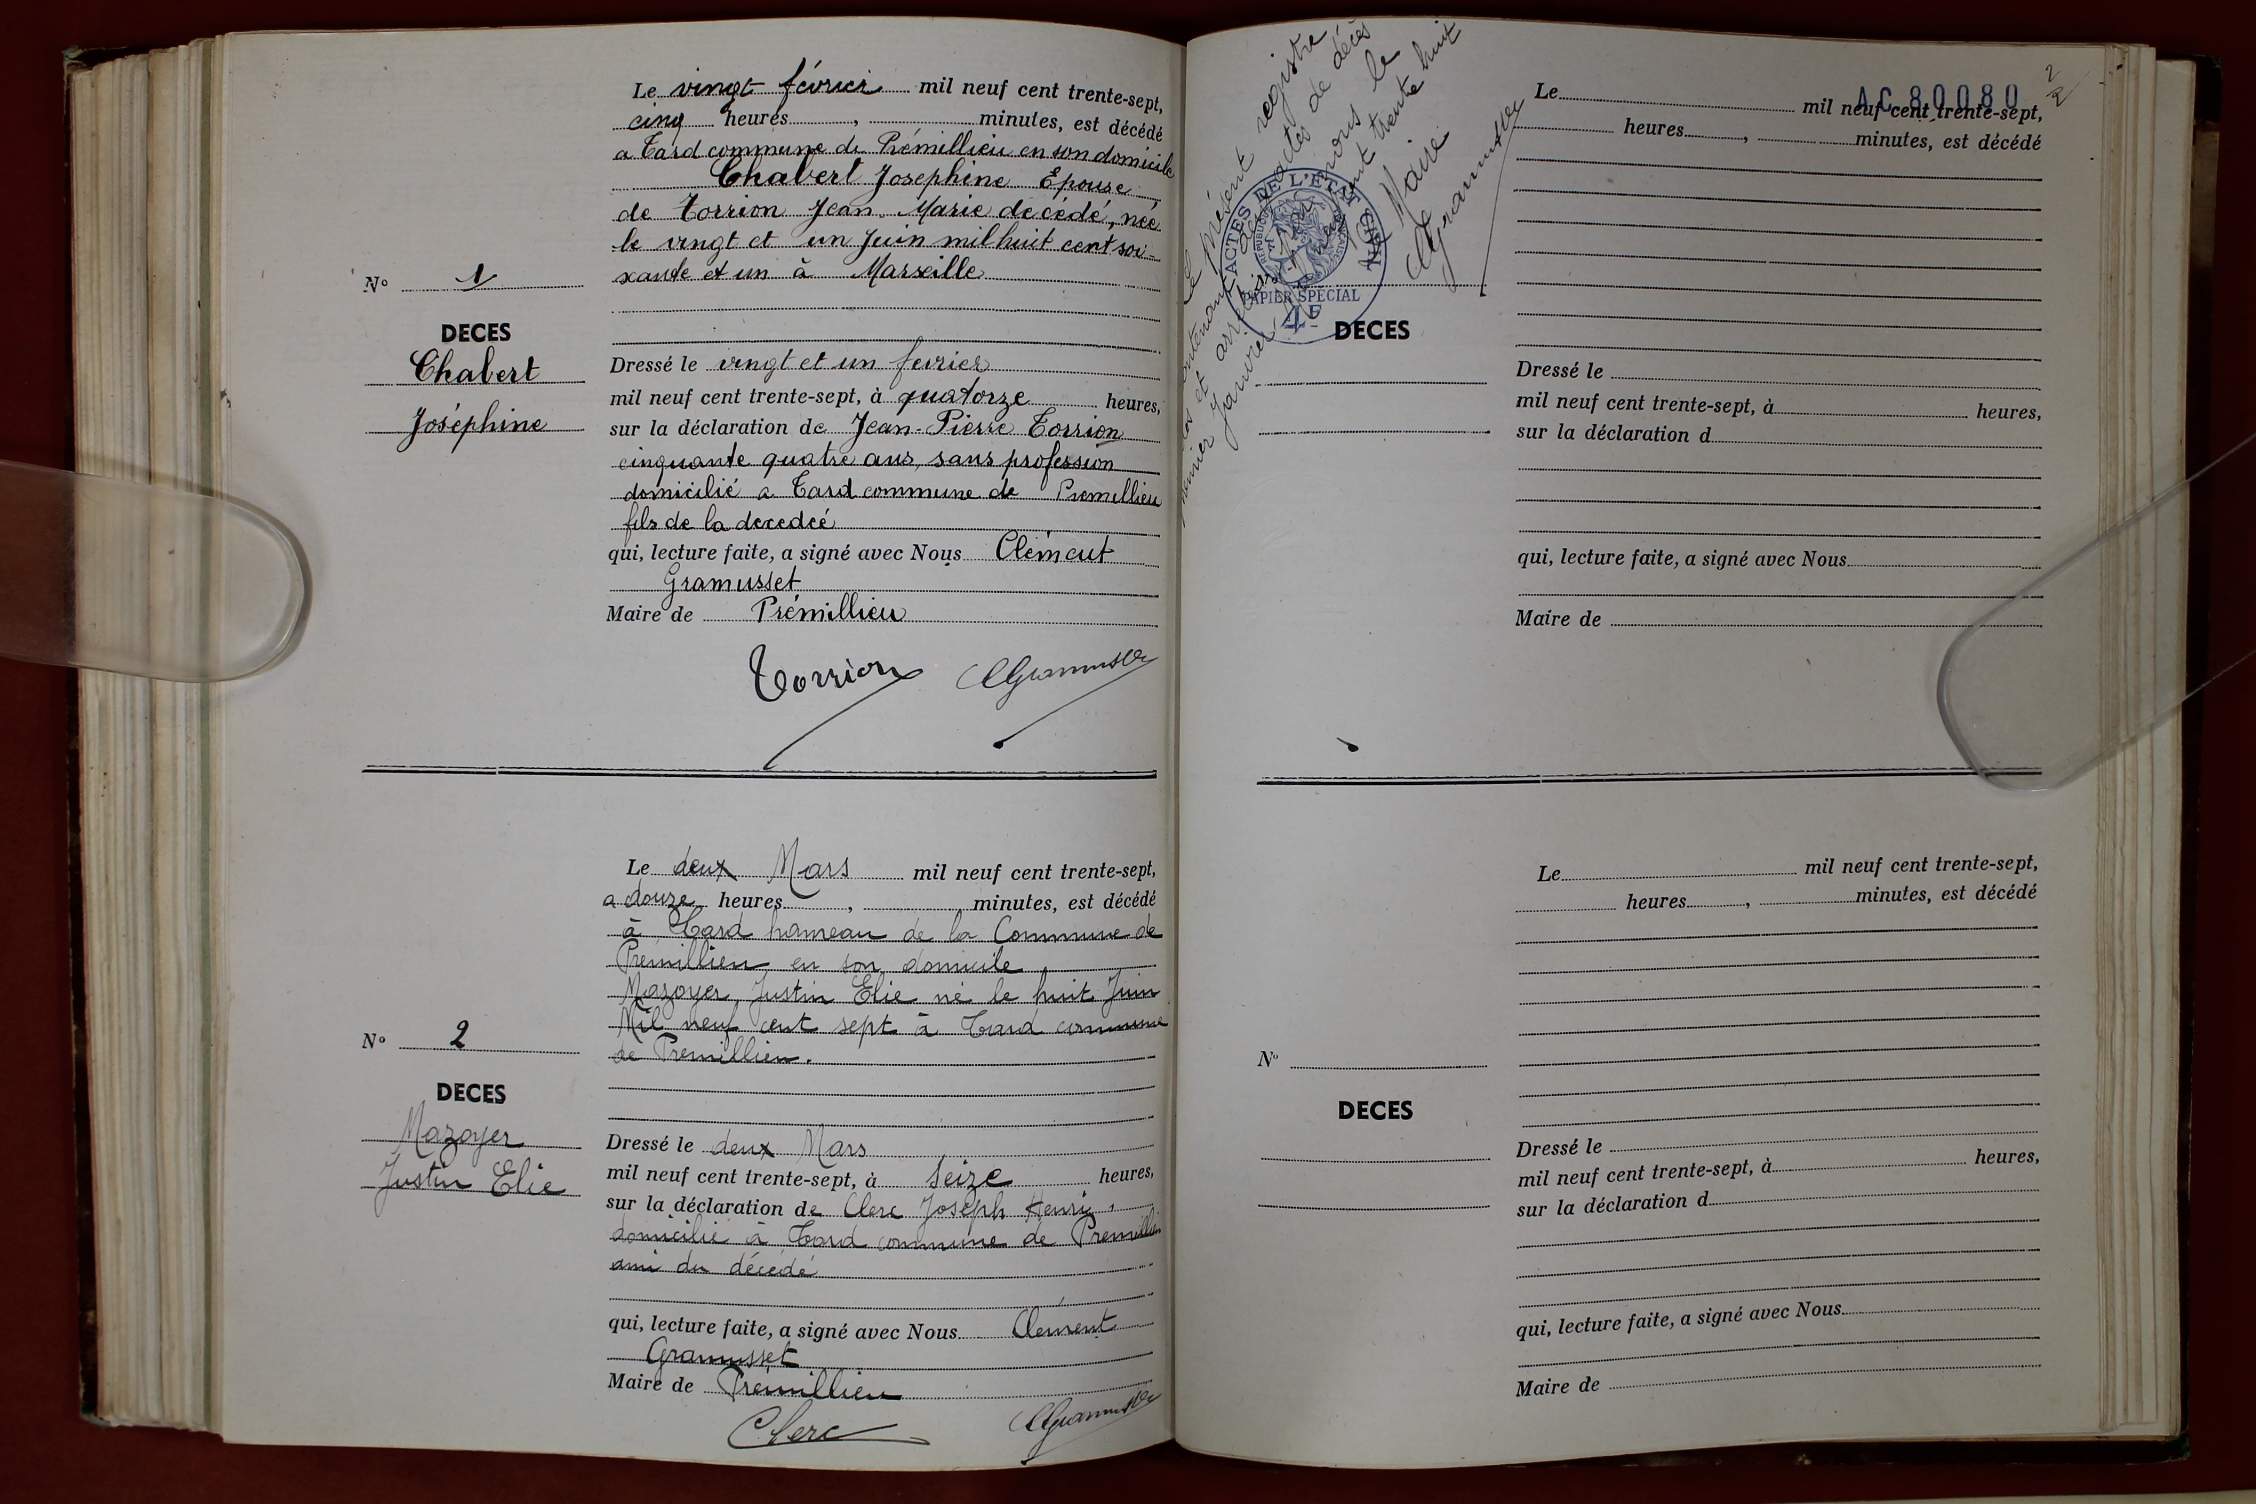 Le vingt février mil neuf cent trente-sept,
cinq heures, minutes, est décédé
a Tard commune de Prémillieu en son domicile
Chabert Joséphine Epouse
de Torrion Jean Marie décédé, née
le vingt et un Juin mil huit cent soi-
xante et un à Marseille
N° 1
DECES
Chabert
Joséphine
Dressé le vingt et un fevrier
mil neuf cent trente-sept, à quatorze heures,
sur la déclaration de Jean-Pierre Torrion
cinquante quatre ans, sans profession
domicilié a Tard commune de Premillieu
fils de la decedeé
qui, lecture faite, a signé avec Nous Clément
Gramusset
Maire de Prémillieu
Torrion CGramusset
Le deux Mars mil neuf cent trente-sept,
a douze heures, minutes, est décédé
à Tard hameau de la Commune de
Prémillieu en son domicile
Mazoyer Justin Elie né le huit Juin
Mil neuf cent sept à Tard commune
de Premillieu.
N° 2
DECES
Mazoyer
Justin Elie
Dressé le deux Mars
mil neuf cent trente-sept, à seize heures,
sur la déclaration de Clerc Joseph Henri,
domicilié à Tard commune de Premillieu
ami du décédé
qui, lecture faite, a signé avec Nous Clément
Gramusset
Maire de Prémillieu
Clerc CGramusset
2
2
AC 80080
Le présent registre
contenant deux actes de décès
clos et arrêté par nous le
premier Janvier mil neuf cent trente huit
Le Maire
CGramusset
ACTES DE L'ETAT CIVIL
REPUBLIQUE FRANÇAISE
PAPIER SPECIAL
4F
Le mil neuf cent trente-sept,
heures, minutes, est décédé
DECES
Dressé le
mil neuf cent trente-sept, à heures,
sur la déclaration d
qui, lecture faite, a signé avec Nous
Maire de
Le mil neuf cent trente-sept,
heures, minutes, est décédé
N°
DECES
Dressé le
mil neuf cent trente-sept, à heures,
sur la déclaration d
qui, lecture faite, a signé avec Nous
Maire de